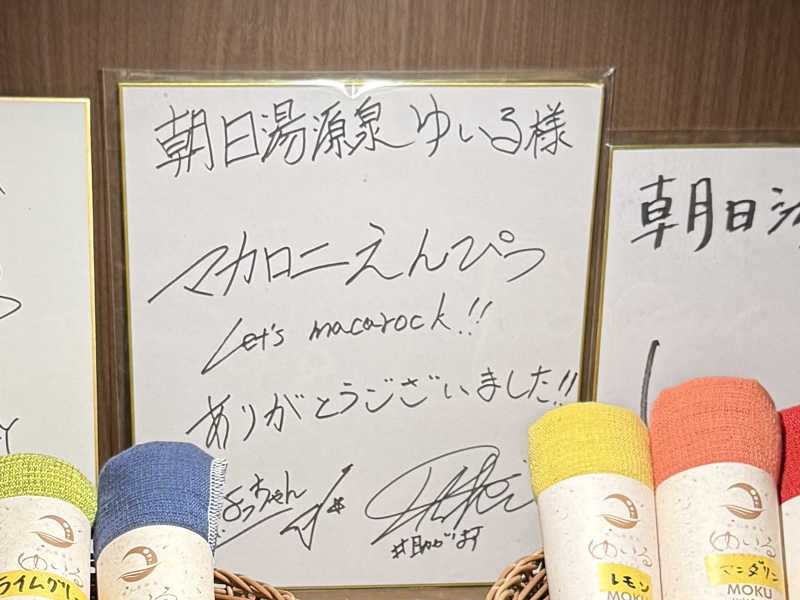 朝日湯源泉ゆいる様
マカロニえんぴつ
Let's macarock!!
ありがとうございました!!
よっちゃん
朝日
ゆいる
ライムグリ
ゆいる
レモン
MOKU
ゆいる
マンダリン
MOKU